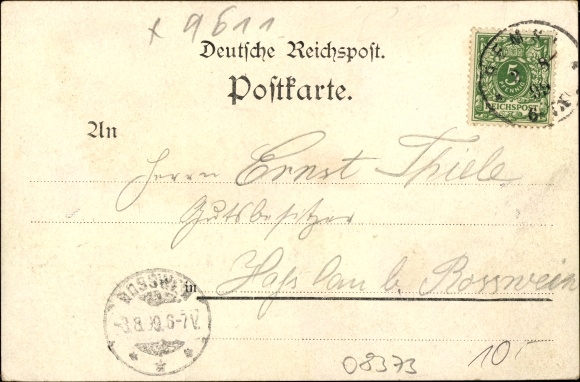 x 9611
Deutsche Reichspost.
Postkarte.
5
REICHSPOST
An
Herrn Ernst Thiele
Gutsbesitzer
in Hasslau b. Rosswein
ROSSWEIN
-3.8.00.6-7V.
08373
10.-